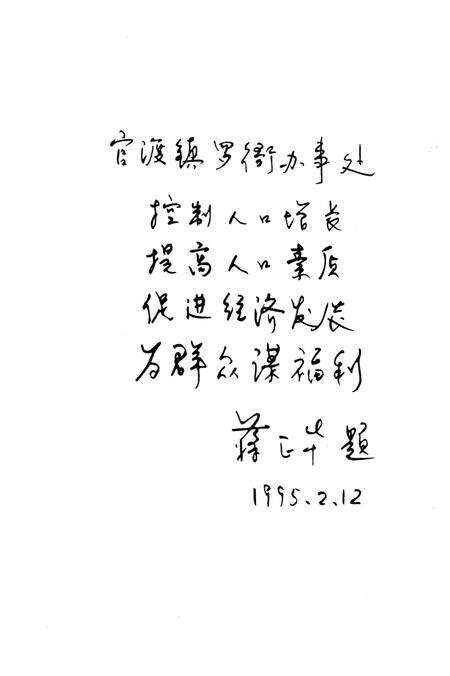 官渡镇罗衙办事处
控制人口增长
提高人口素质
促进经济发展
为群众谋福利
蒋正华题
1995.2.12